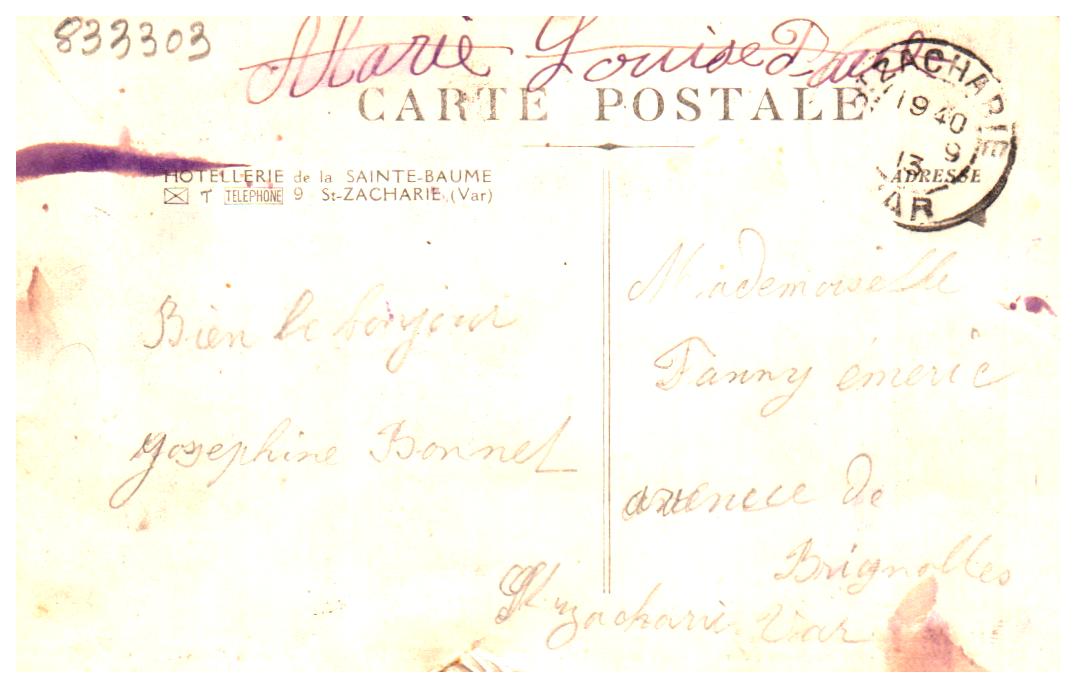 833303
Marie Louise Paule
CARTE POSTALE
HOTELLERIE de la SAINTE-BAUME
TELEPHONE 9 St-ZACHARIE (Var)
ST ZACHARIE
1940
13 9
VAR
ADRESSE
Bien le bonjour
Josephine Bonnet
Mademoiselle
Fanny émeric
avenue de
Brignolles
St zacharie Var